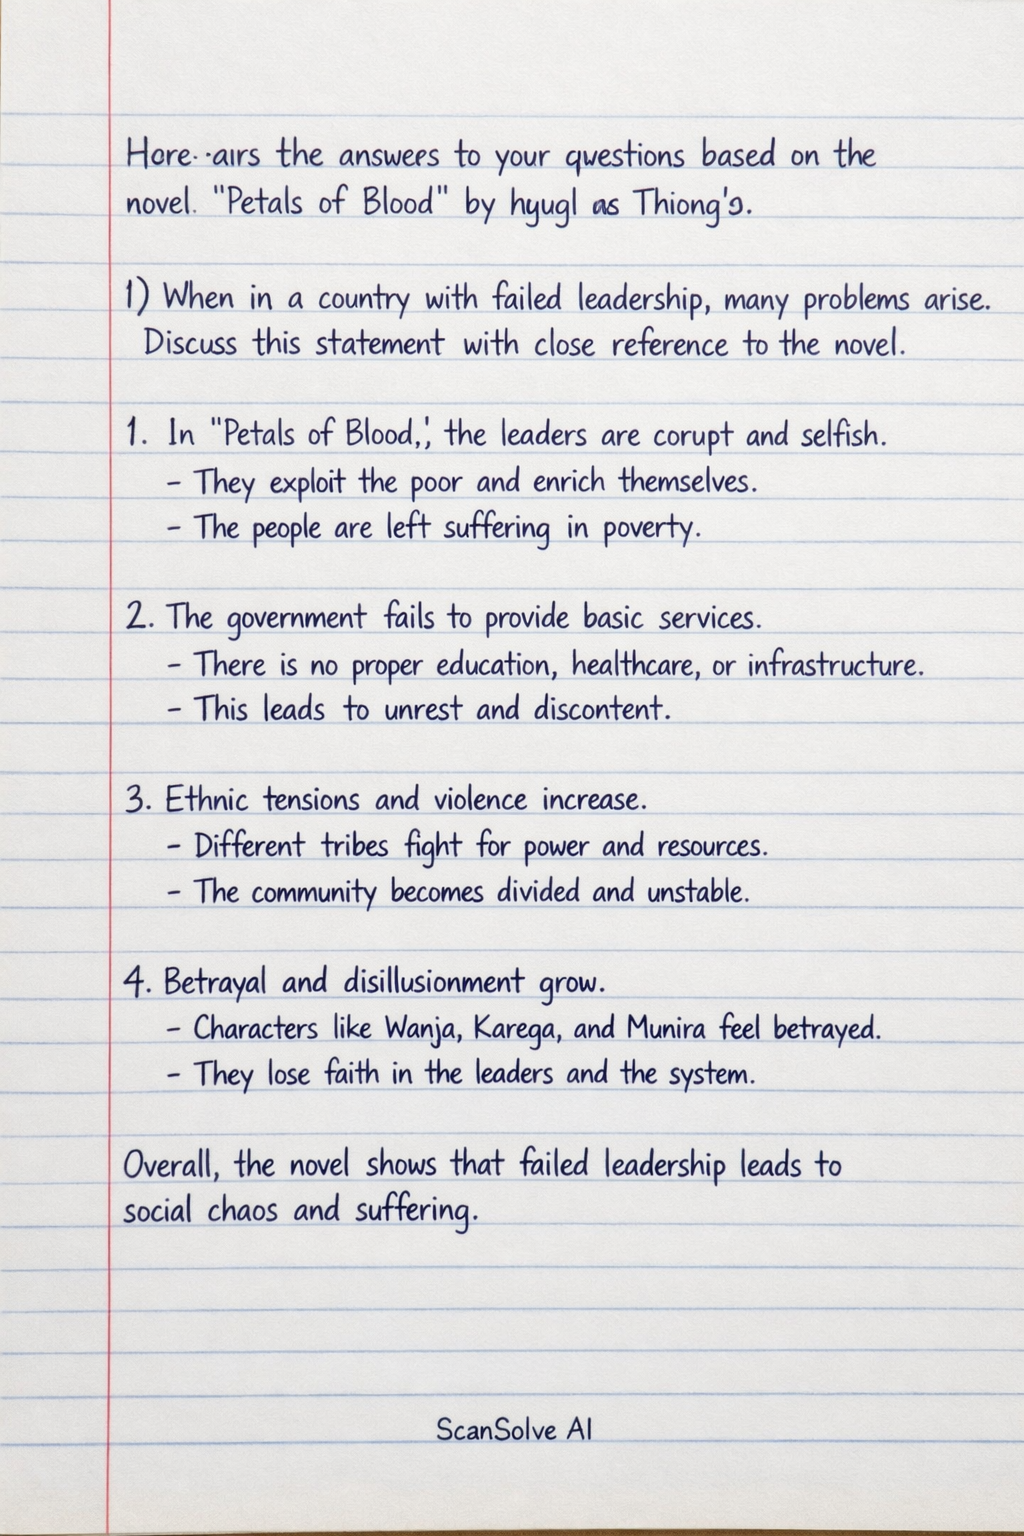 Hore. .airs the answees to your qwestions based on the
novel. "Petals of Blood" by hyugl as Thiong'o.
1) When in a country with failed leadership, many problems arise.
Discuss this statement with close reference to the novel.
1. In "Petals of Blood,', the leaders are corupt and selfish.
- They exploit the poor and enrich themselves.
- The people are left suffering in poverty.
2. The government fails to provide basic services.
- There is no proper education, healthcare, or infrastructure.
- This leads to unrest and discontent.
3. Ethnic tensions and violence increase.
- Different tribes fight for power and resources.
- The community becomes divided and unstable.
4. Betrayal and disillusionment grow.
- Characters like Wanja, Karega, and Munira feel betrayed.
- They lose faith in the leaders and the system.
Overall, the novel shows that failed leadership leads to
social chaos and suffering.
ScanSolve AI